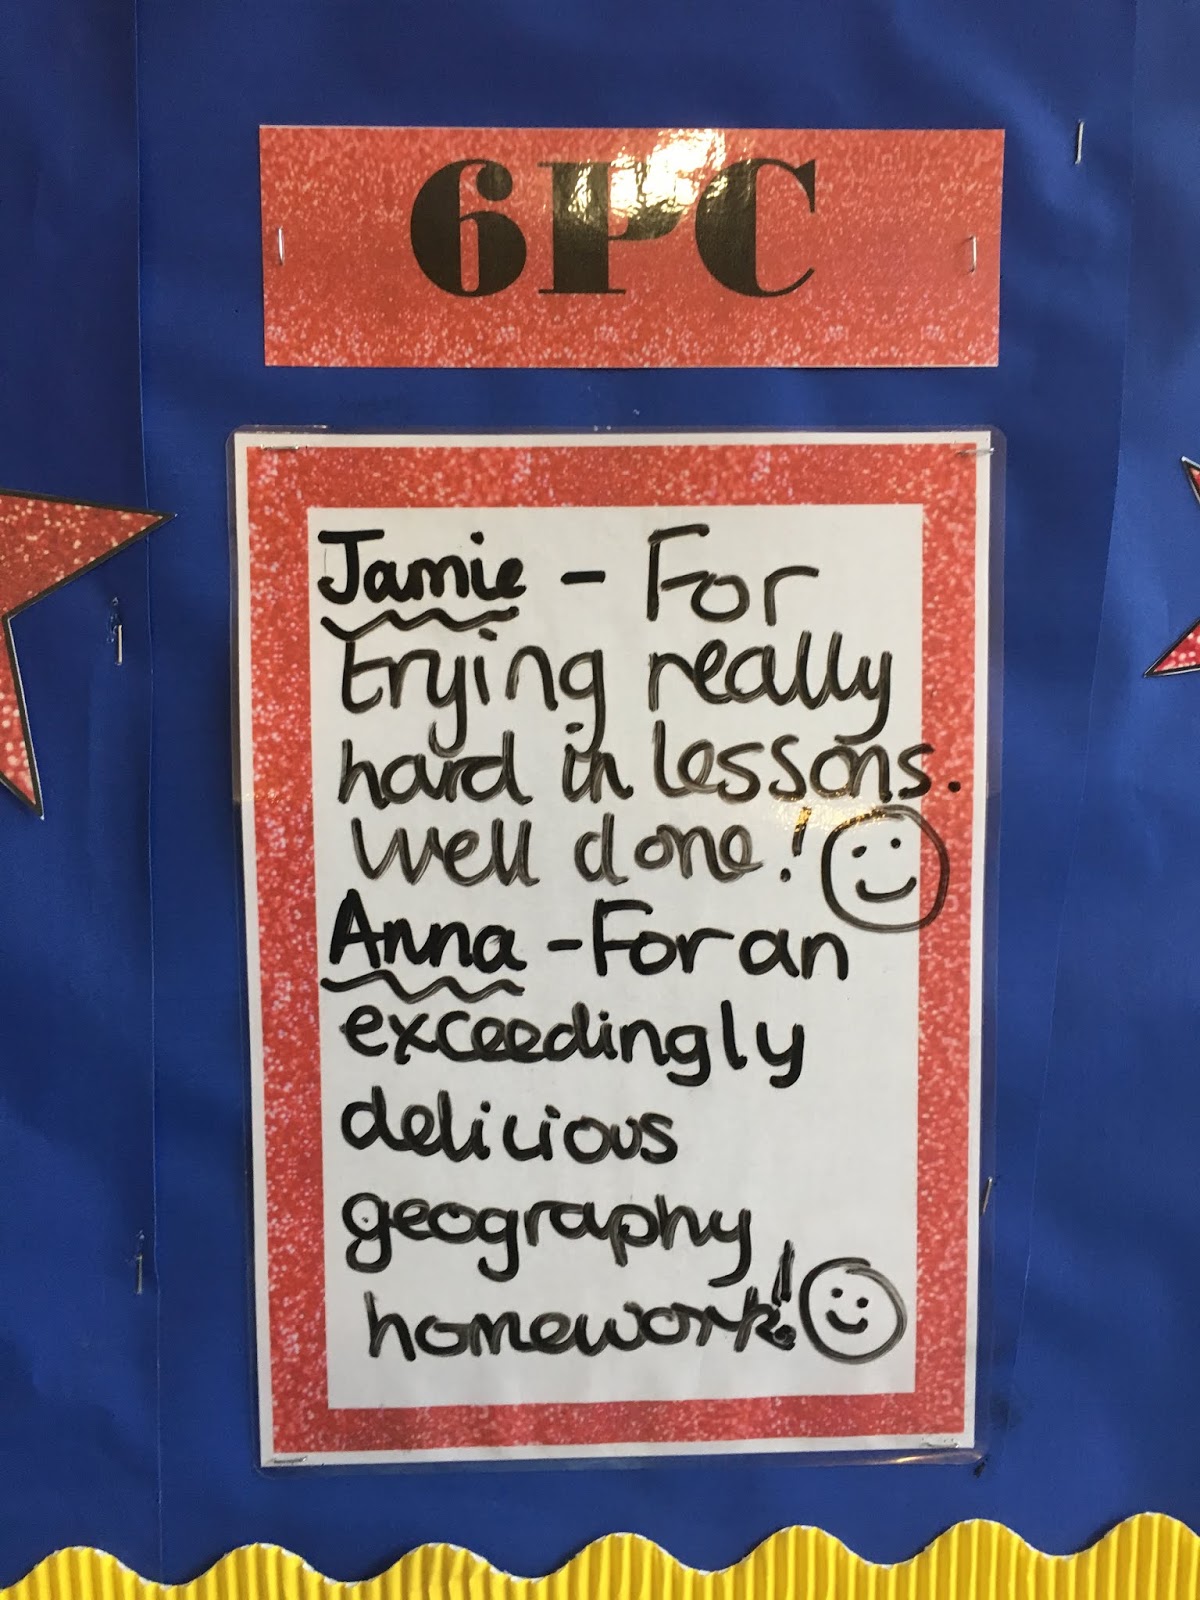 6PC
Jamie - For
trying really
hard in lessons.
Well done!
Anna - For an
exceedingly
delicious
geography
homework!